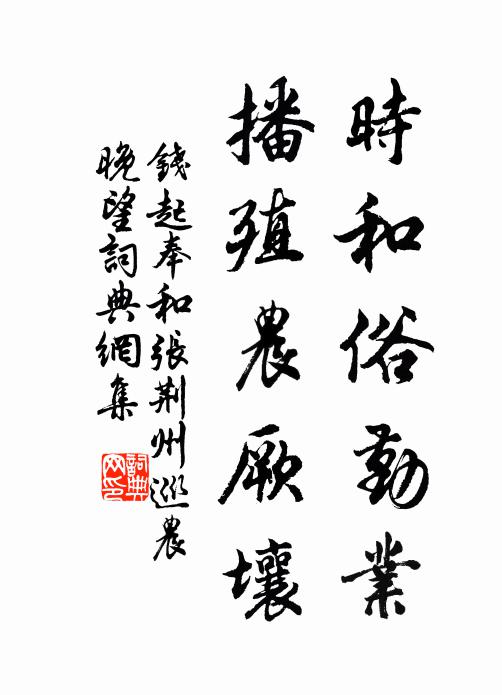 時和俗勤業
播殖農厥壤
錢起奉和張荊州巡農
晚望詞典網集
詞典
网印